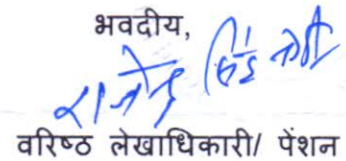 भवदीय,
राजेन्द्र सिंह
वरिष्ठ लेखाधिकारी/ पेंशन